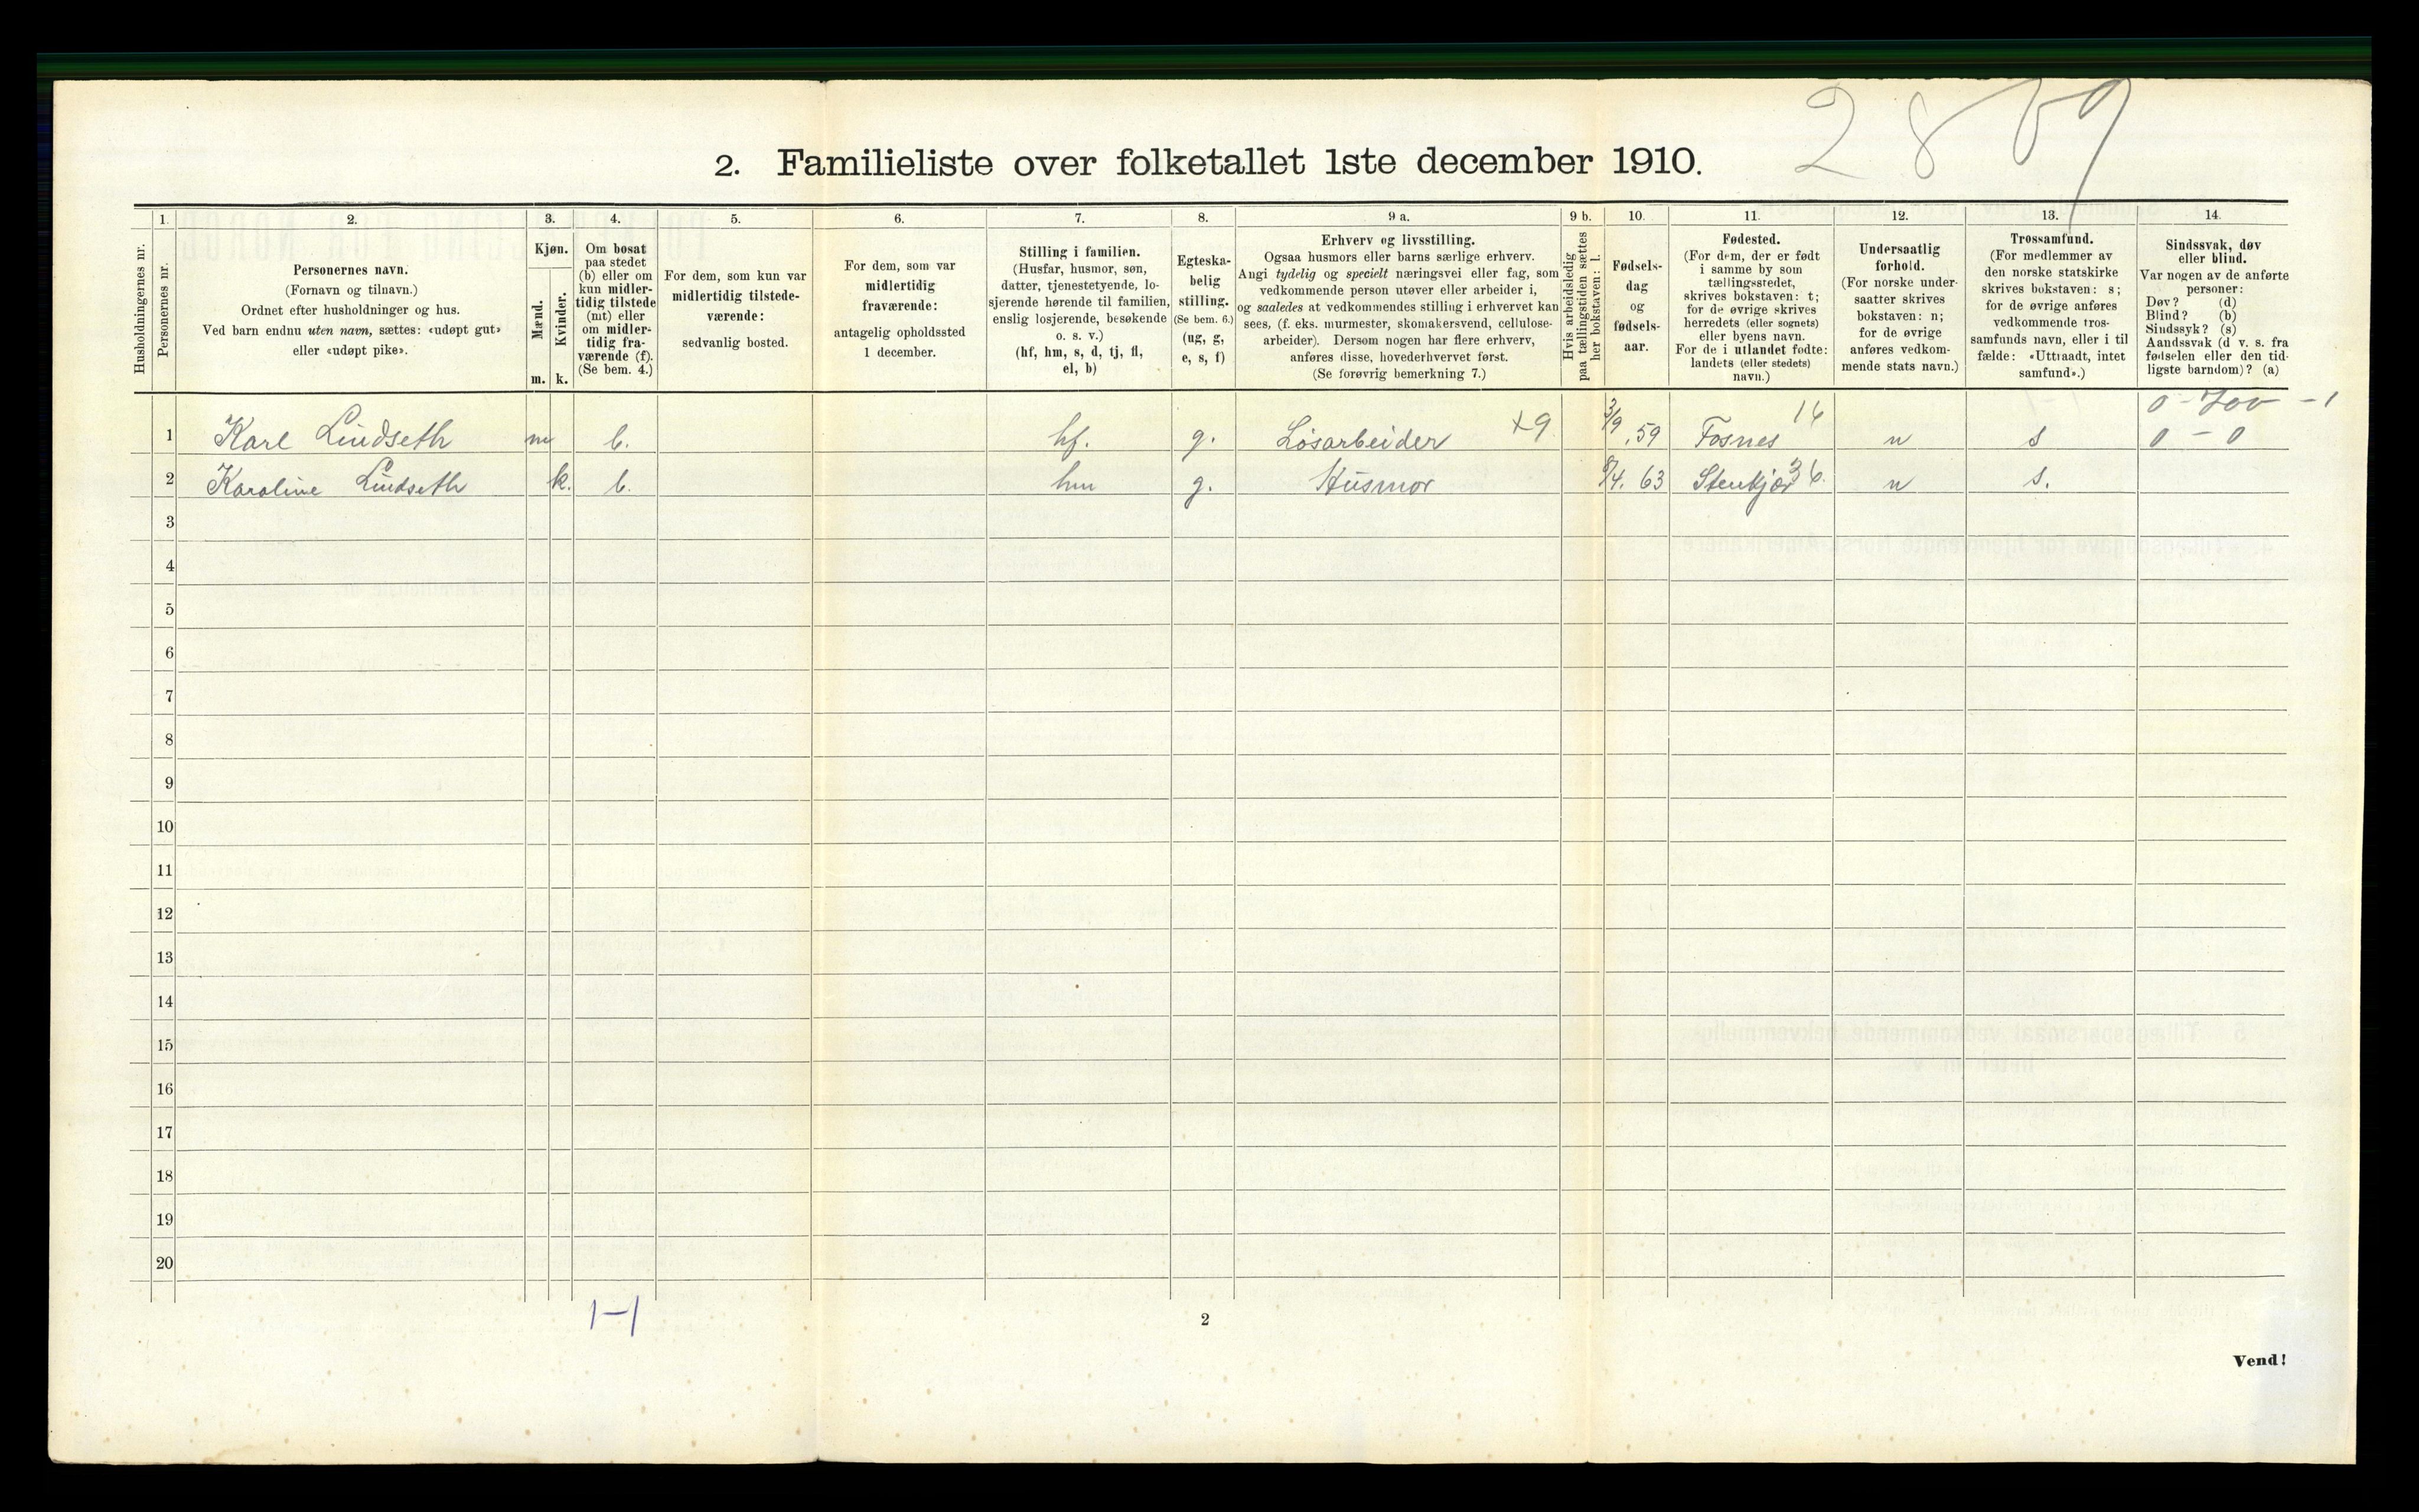 2869
2. Familieliste over folketallet 1ste december 1910.
1. 2. 3. 4. 5. 6. 7. 8. 9 a. 9 b. 10. 11. 12. 13. 14.
Husholdningernes nr.
Personernes nr.
Personernes navn.
(Fornavn og tilnavn.)
Ordnet efter husholdninger og hus.
Ved barn endnu uten navn, sættes: «udøpt gut»
eller «udøpt pike».
Kjøn.
Mænd.
Kvinder.
m. k.
Om bosat
paa stedet
(b) eller om
kun midler-
tidig tilstede
(mt) eller
om midler-
tidig fra-
værende (f).
(Se bem. 4.)
For dem, som kun var
midlertidig tilstede-
værende:
sedvanlig bosted.
For dem, som var
midlertidig
fraværende:
antagelig opholdssted
1 december.
Stilling i familien.
(Husfar, husmor, søn,
datter, tjenestetyende, lo-
sjerende hørende til familien,
enslig losjerende, besøkende
o. s. v.)
(hf, hm, s, d, tj, fl,
el, b)
Egteska-
belig
stilling.
(Se bem. 6.)
(ug, g,
e, s, f)
Erhverv og livsstilling.
Ogsaa husmors eller barns særlige erhverv.
Angi tydelig og specielt næringsvei eller fag, som
vedkommende person utøver eller arbeider i,
og saaledes at vedkommendes stilling i erhvervet kan
sees, (f. eks. murmester, skomakersvend, cellulose-
arbeider). Dersom nogen har flere erhverv,
anføres disse, hovederhvervet først.
(Se forøvrig bemerkning 7.)
Hvis arbeidsledig
paa tællingstiden sættes
her bokstaven: l.
Fødsels-
dag
og
fødsels-
aar.
Fødested.
(For dem, der er født
i samme by som
tællingsstedet,
skrives bokstaven: t;
for de øvrige skrives
herredets (eller sognets)
eller byens navn.
For de i utlandet fødte:
landets (eller stedets)
navn.)
Undersaatlig
forhold.
(For norske under-
saatter skrives
bokstaven: n;
for de øvrige
anføres vedkom-
mende stats navn.)
Trossamfund.
(For medlemmer av
den norske statskirke
skrives bokstaven: s;
for de øvrige anføres
vedkommende tros-
samfunds navn, eller i til
fælde: «Uttraadt, intet
samfund».)
Sindssvak, døv
eller blind.
Var nogen av de anførte
personer:
Døv? (d)
Blind? (b)
Sindssyk? (s)
Aandssvak (d v. s. fra
fødselen eller den tid-
ligste barndom)? (a)
0 - 700 - 1
1 Karl Lindseth m b. hf. g. Løsarbeider +9 3/9 .59 Fosnes 16 n s 0 - 0
2 Karoline Lindseth k. b. hm g. Husmor 8/4. 63 Stenkjær 36. n s.
3
4
5
6
7
8
9
10
11
12
13
14
15
16
17
18
19
20
1-1
2
Vend!